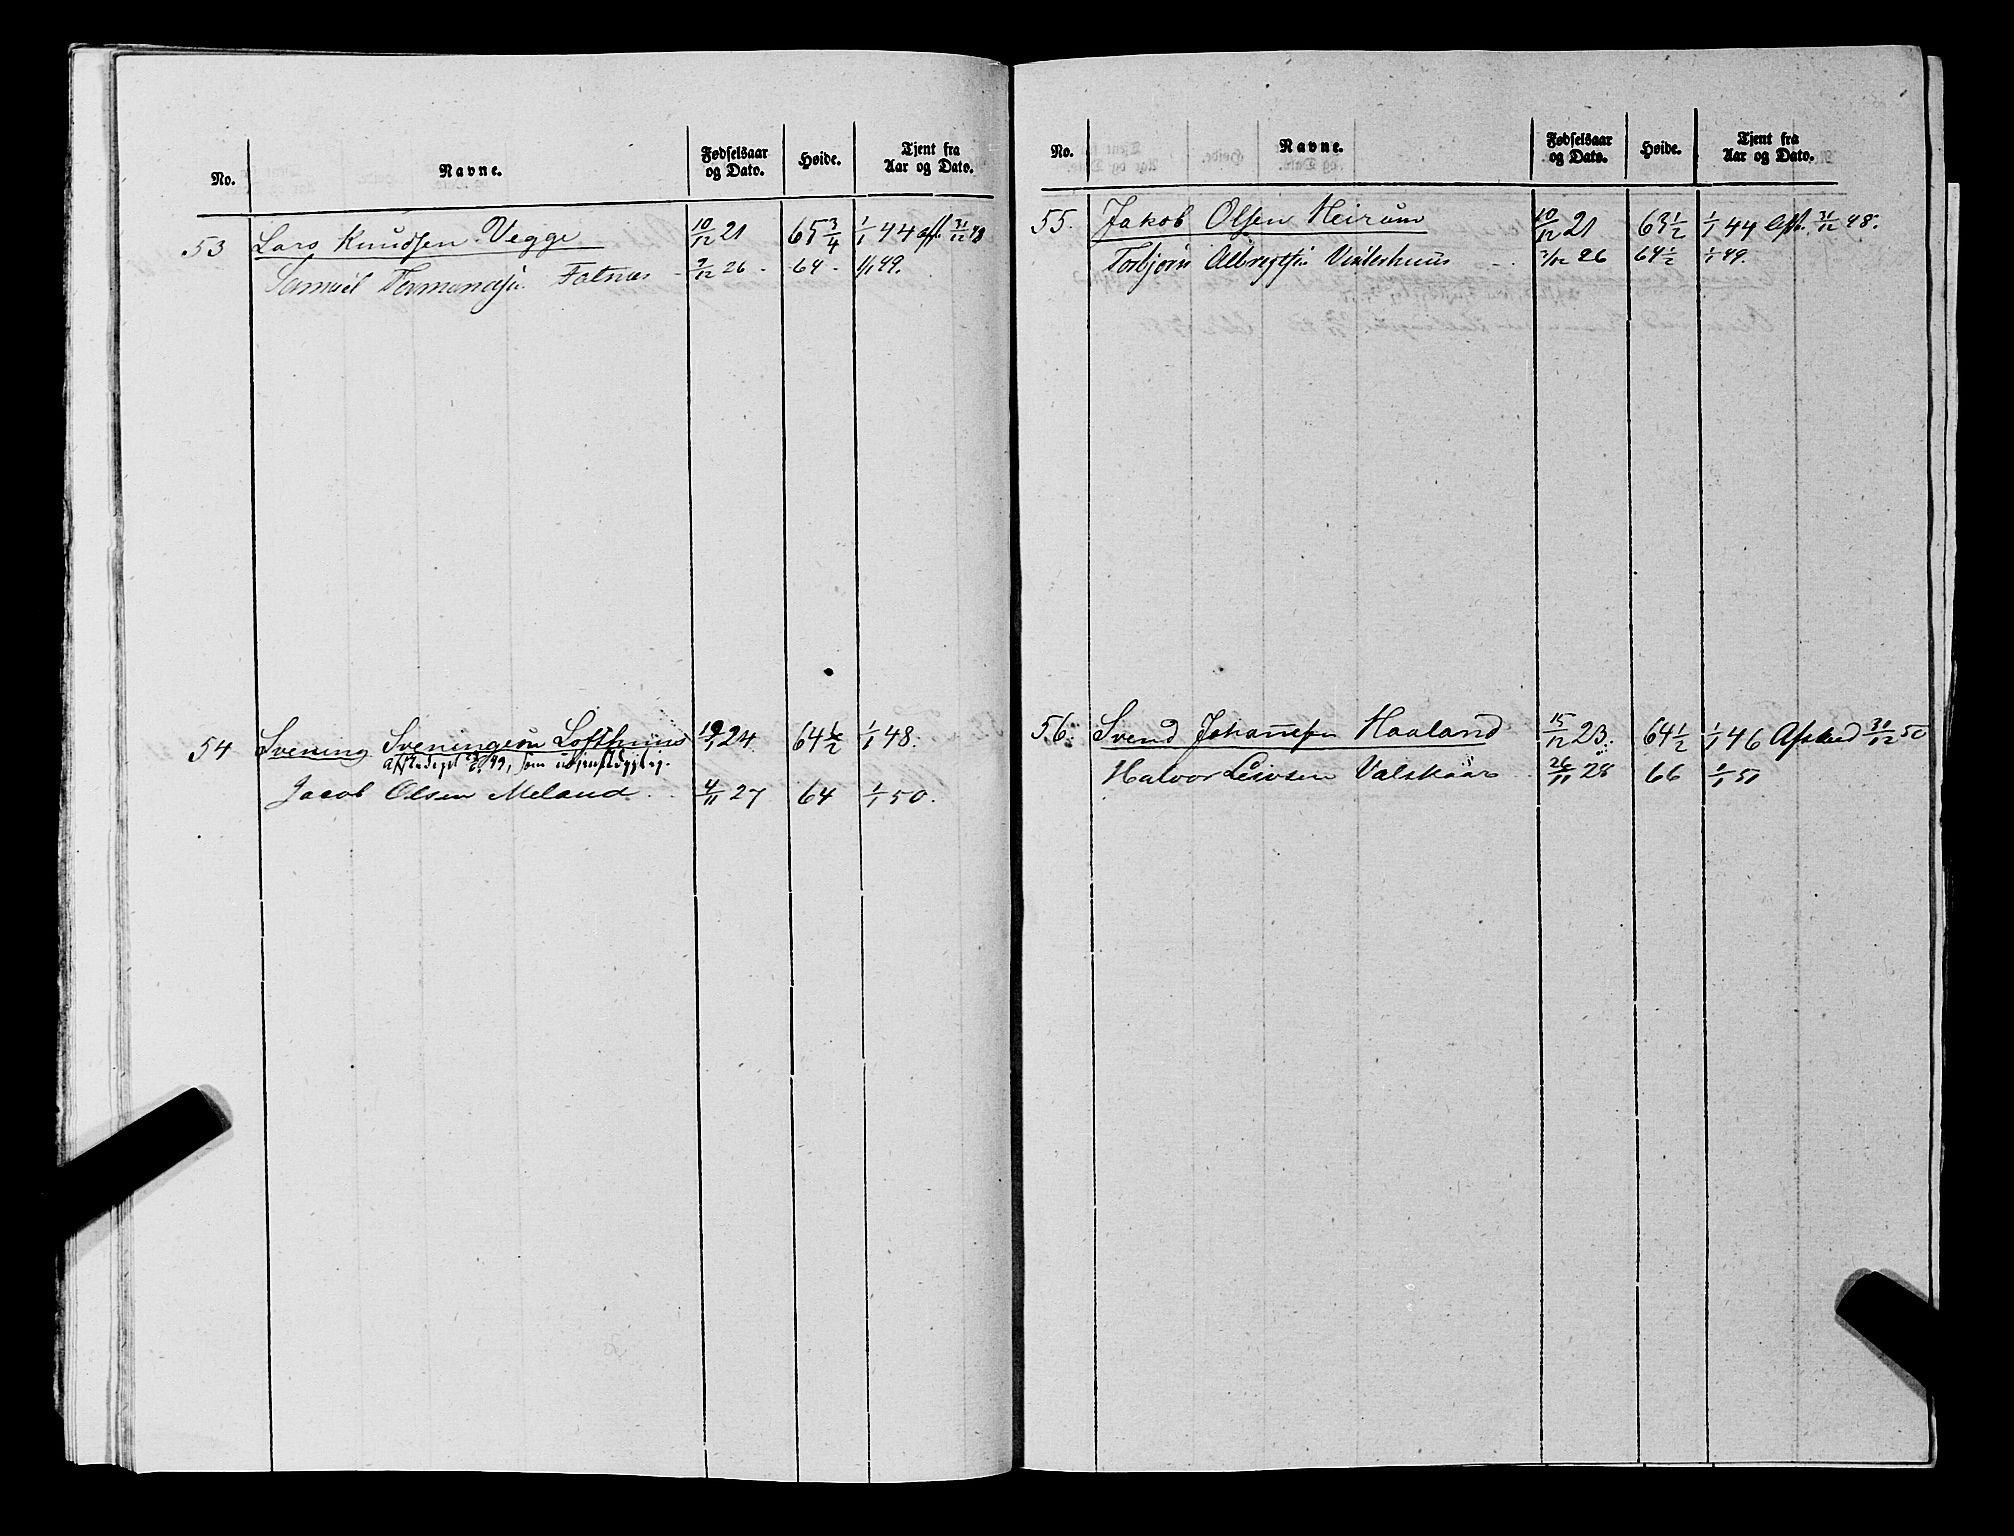 No. Navne. Fødselsaar og Dato. Høide. Tjent fra Aar og Dato.
53 Lars Knudsen Vegge 10/12 21 65 3/4 1/1 44 afsk. 31/12 48
Samuel Fatnæs 9/12 26. 64. 1/1 49.
54 Svening Sveningsen Lofthuus 24 64 1/2 1/1 48.
49, som utjenstdygtig.
Jacob Olsen Meland 4/11 27 64 1/1 50.
No. Navne. Fødselsaar og Dato. Høide. Tjent fra Aar og Dato.
55. Jakob Olsen Heirum 10/12 21 63 1/2 1/1 44 Afsk. 31/12 48.
Torbjørn Albregtsen Vinterhuus 26 64 1/2 1/1 49.
56. Svend Johannesen Haaland 15/12 23. 64 1/2 1/1 46 Afsked 31/12 50
Halvor Leivsen Valskaar 26/11 28 66 1/1 51